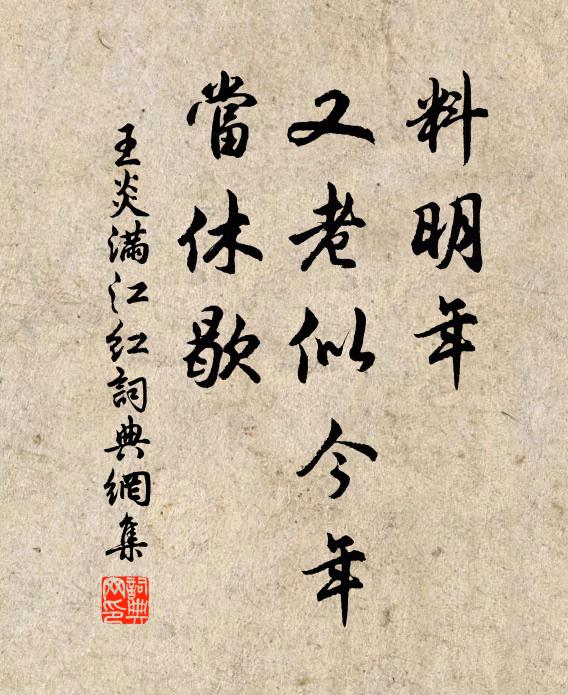 料明年
又老似今年
當休歇
王炎滿江紅詞典網集
詞典
网印